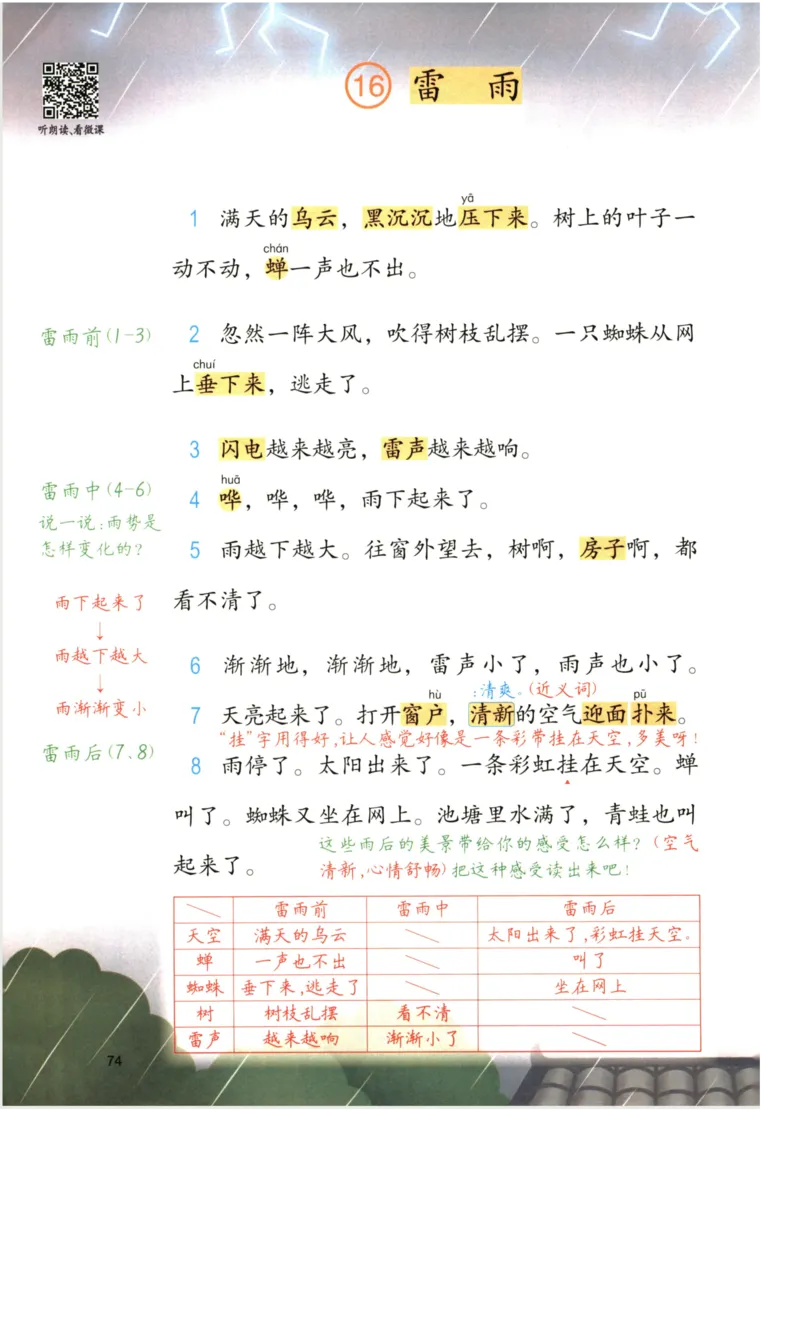 听朗读、看微课
16 雷 雨
yā
1 满天的乌云，黑沉沉地压下来。树上的叶子一
chán
动不动，蝉一声也不出。
雷雨前(1-3)
2 忽然一阵大风，吹得树枝乱摆。一只蜘蛛从网
chuí
上垂下来，逃走了。
3 闪电越来越亮，雷声越来越响。
雷雨中(4-6)
huā
4 哗，哗，哗，雨下起来了。
说一说:雨势是
怎样变化的?
5 雨越下越大。往窗外望去，树啊，房子啊，都
看不清了。
雨下起来了
↓
雨越下越大
↓
雨渐渐变小
6 渐渐地，渐渐地，雷声小了，雨声也小了。
:清爽。(近义词)
hù pū
7 天亮起来了。打开窗户，清新的空气迎面扑来。
"挂"字用得好,让人感觉好像是一条彩带挂在天空,多美呀!
雷雨后(7、8)
8 雨停了。太阳出来了。一条彩虹挂在天空。蝉
叫了。蜘蛛又坐在网上。池塘里水满了，青蛙也叫
起来了。
这些雨后的美景带给你的感受怎么样?(空气
清新,心情舒畅)把这种感受读出来吧!
雷雨前 雷雨中 雷雨后
天空 满天的乌云 太阳出来了,彩虹挂天空。
蝉 一声也不出 叫了
蜘蛛 垂下来,逃走了 坐在网上
树 树枝乱摆 看不清
雷声 越来越响 渐渐小了
74